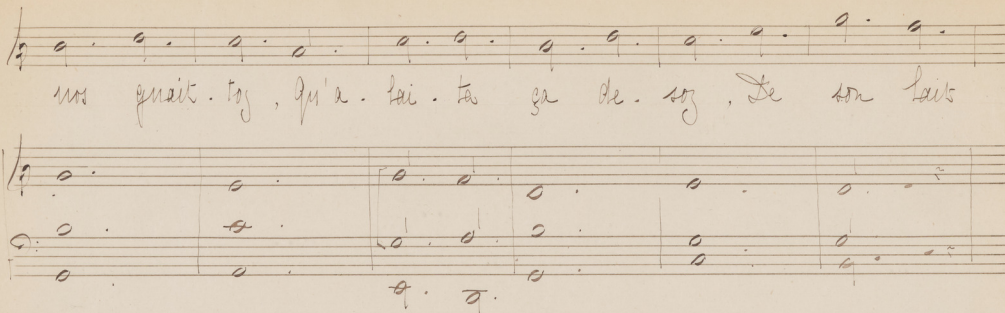 nos guait. toz, Qu'a. lai. ta ça de. soz, De son lait